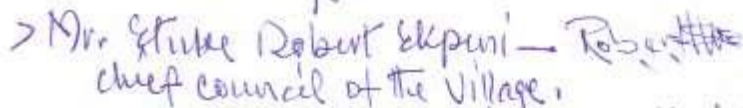 > Mr. Etube Robert Ekpuri — Robert
chief council of the village.